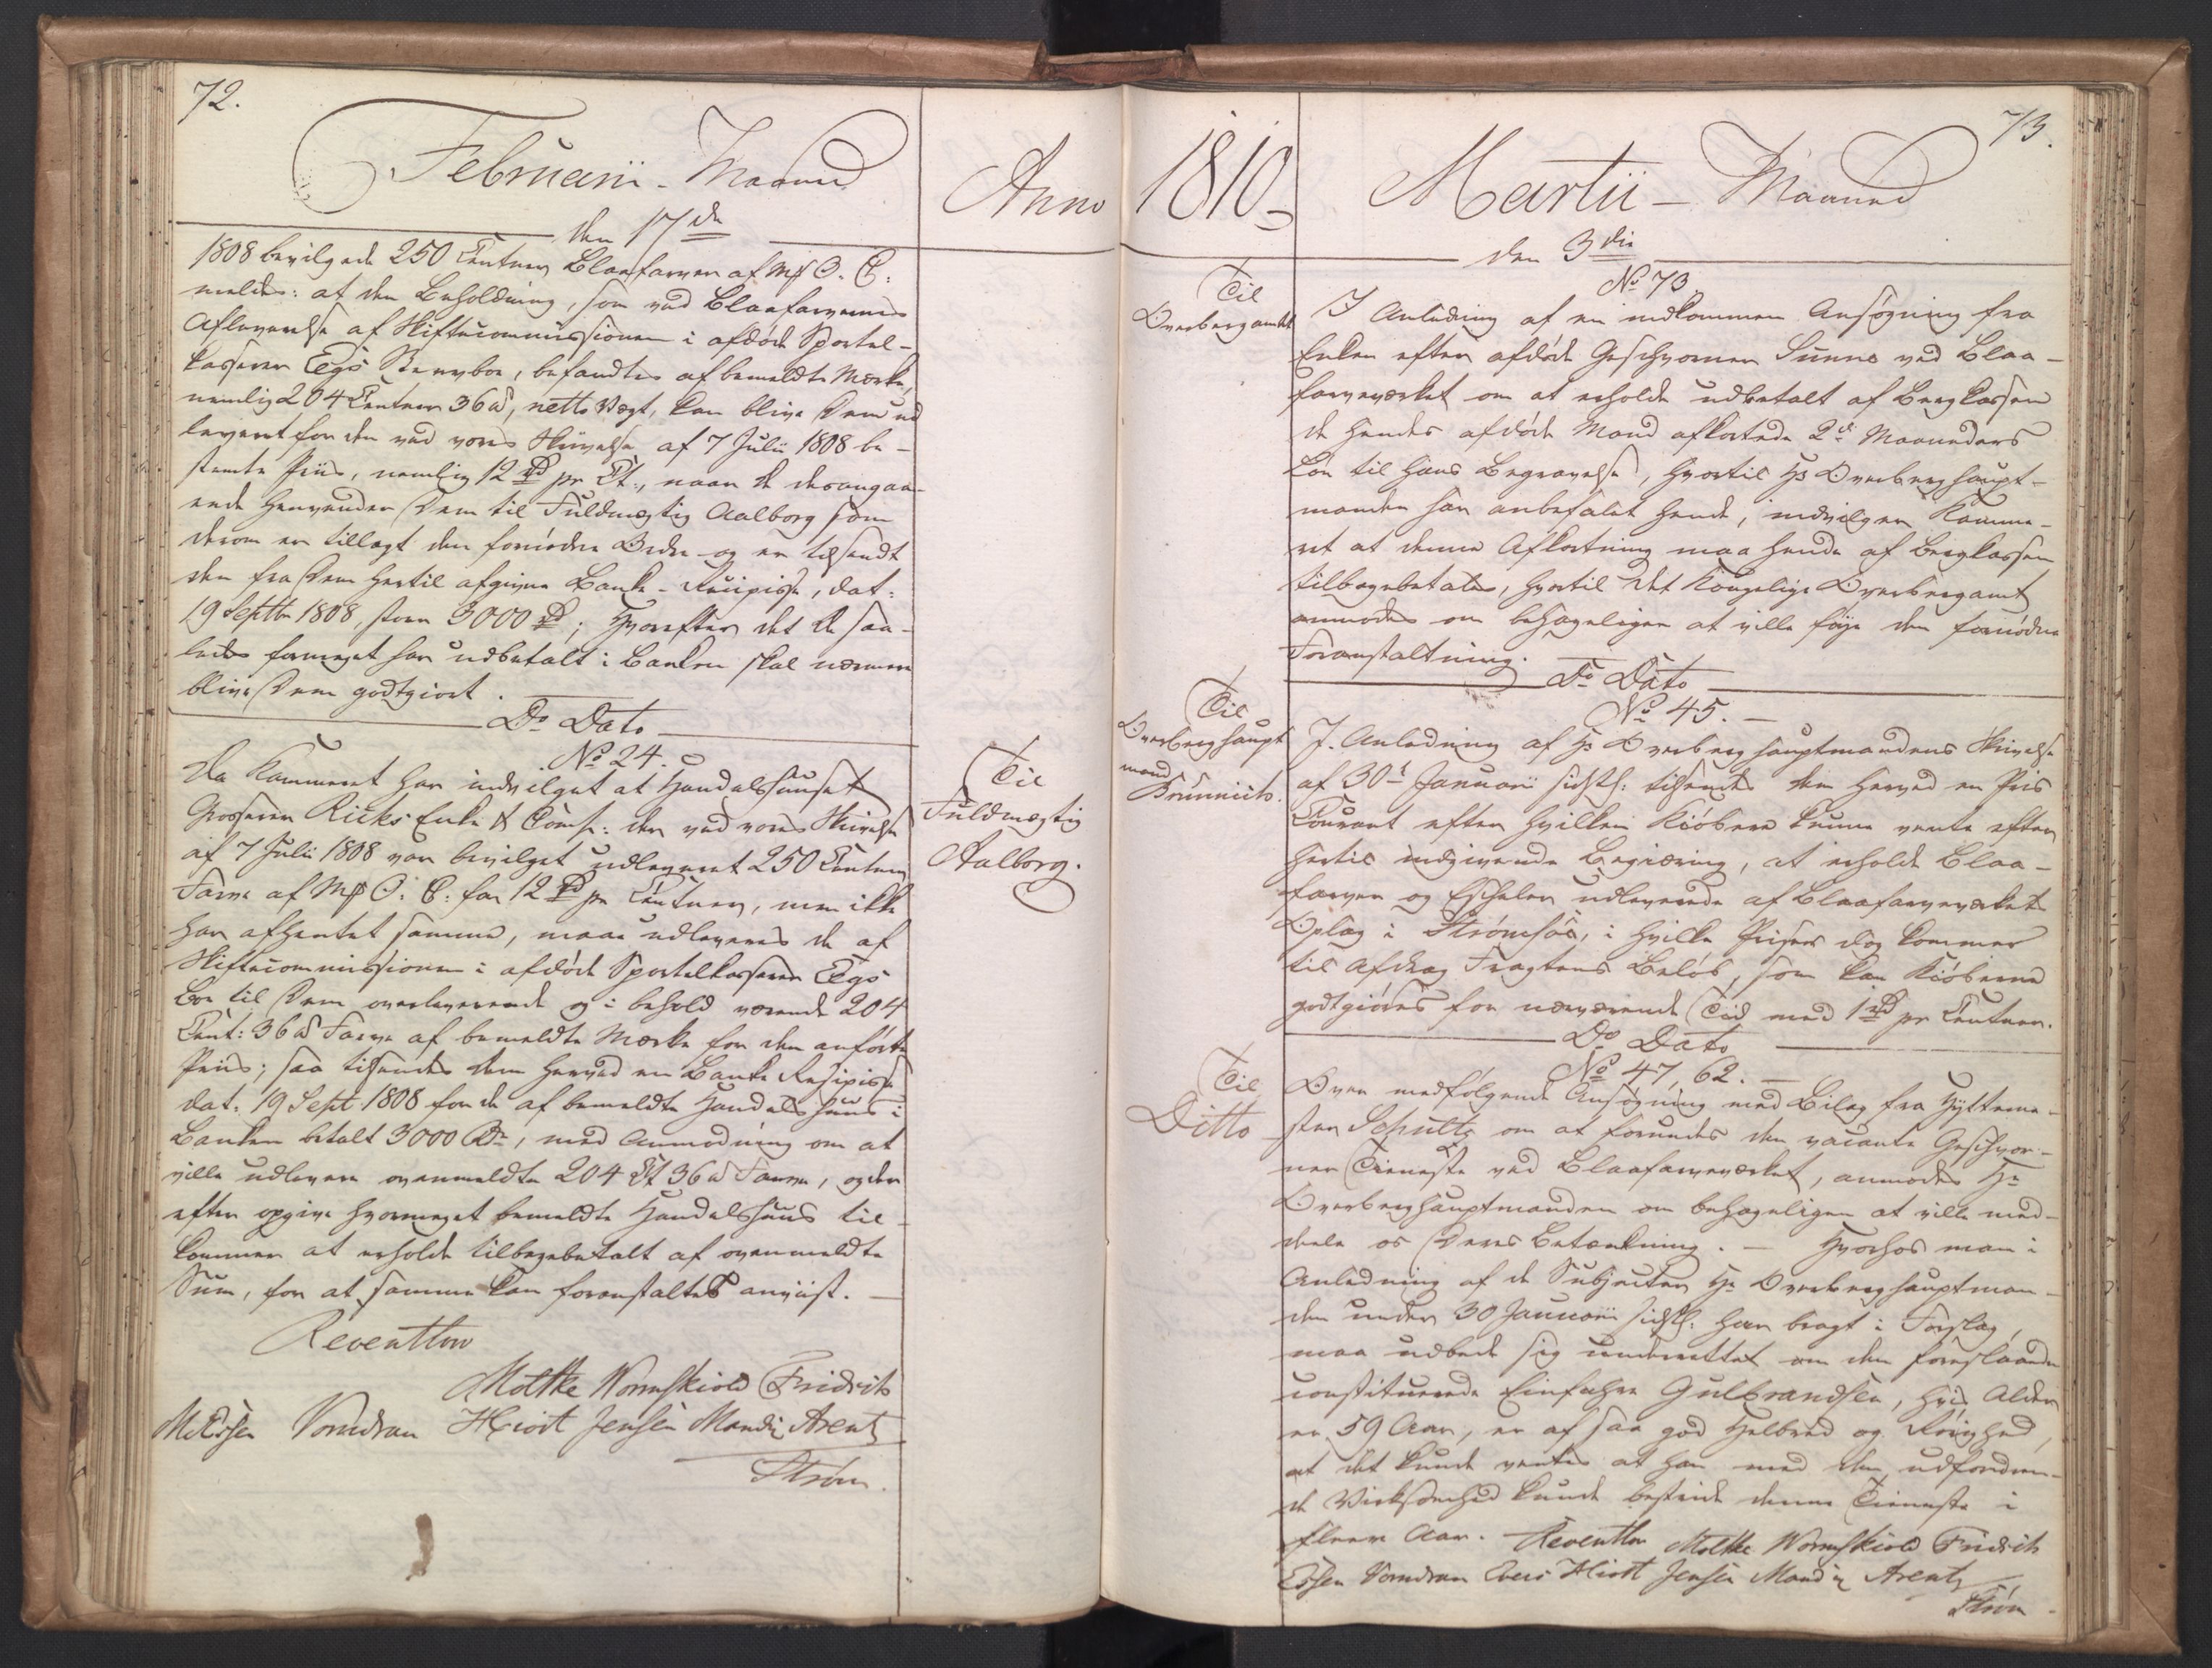 72.
Februarii - Maaned
Anno
den 17de
1808 bevilgede 250 Centner Blaafarver af M/ O. C:
meldes: at den Beholdning, som ved Blaafarvernes
Afleverelse af Skiftecommissionen i afdøde Sportel-
kasserer Egs Stervboe, befandtes af bemeldte Mærke,
nemlig 204 Centner 36 ℔, netto Vægt, kan blive Dem ud
leveret for den ved vores Skrivelse af 7 Julii 1808 be-
stemte Priis, nemlig 12 Rd pr Ct:, naar De desangaa-
ende henvender Dem til Fuldmægtig Aalborg som
derom er tillagt den fornødne Ordre og er tilsendt
den fra Dem hertil afgivne Banke-Recipisse, dat:
19 Septbr 1808, stor 3000 Rd; Hvorefter det De saa-
ledes formeget har udbetalt i Banken skal nærmere
blive Dem godtgiort.
Do Dato
No 24.
Til
Fuldmægtig
Aalborg.
Da Kammeret har indvilget at Handelshuuset
Grosserer Ricks Enke & Comp: der ved vores Skrivelse
af 7 Julii 1808 var bevilget udleveret 250 Centner
Farve af M/ O: C: for 12 Rd pr Centner, men ikke
har afhentet samme, maae udleveres de af
Skiftecommissionen i afdøde Sportelkasserer Egs
Boe til Dem overleverede og i behold værende 204
Cent: 36 ℔ Farve af bemeldte Mærke for den anførte
Priis; saa tilsendes Dem herved en Banke Resipisse
dat: 19 Sept 1808 for de af bemeldte Handelshuus i
Banken betalt 3000 Rdr, med Anmodning om at
ville udlevere ovenmeldte 204 Ct 36 ℔ Farve, og der
efter opgive hvormeget bemeldte Handelshuus til-
kommer at erholde tilbagebetalt af ovenmeldte
Sum, for at samme kan foranstaltes anviist. -
Reventlow
Moltke Wormskiold Fridrich
M. Essen Vorndran Hiort Jensen Mandix Arentz
Strøm.
73.
1810
Martii - Maaned
den 3die
No 73
Til
Overbergamtet
I Anledning af en indkommen Ansøgning fra
Enken efter afdøde Geschworner Sunne ved Blaa-
farveværket om at erholde udbetalt af Bergkassen
de hendes afdøde Mand afkortede 2de Maaneders
Løn til hans Begravelse, hvortil Hr Overberghaupt-
manden har anbefalet hende, indvilger Kamme-
ret at denne Afkortning maa hende af Bergkassen
tilbagebetales, hvortil det Kongelige Overbergamt
anmodes om behageligen at ville føye den fornødne
Foranstaltning.
Do Dato
No 45. -
Til
Overberghaupt
mand
Brünnich.
I Anledning af Hr Overberghauptmandens Skrivelse
af 30te Januarii sidstl: tilsendes Dem herved en Pris
Courant efter hvilken Kiøbere kunne vente efter
hertil indgivende Begiæring, at erholde Blaa-
farver og Escheler udleverede af Blaafarveværkets
Oplag i Strømsøe, i hvilke Priser dog kommer
til Afdrag Fragtens Beløb, som kan Kiøberne
godtgiøres for nærværende Tid med 1 Rd pr Centner.
Do Dato
No 47, 62. -
Til
Ditto
Over medfølgende Ansøgning med Bilag fra Hytteme-
ster Schultz om at forundes den vacante Geschwor-
ner Tieneste ved Blaafarveværket, anmodes Hr
Overberghauptmanden om behageligen at ville med-
dele os Deres Betænkning. - Hvorhos man i
Anledning af de Subjecter Hr Overberghauptman-
den under 30 Januarii sidstl: har bragt i Forslag,
maa udbede sig underrettet om den foreslaaede
constituerede Einfahrer Gulbrandsen, hvis Alder
er 59 Aar, er af saa god Helbred og Rørighed,
at det kunde ventes at han med den udfordren-
de Virksomhed kunde bestride denne Tieneste i
fleere Aar. Reventlow Moltke Wormskiold Fridrich
Essen Vorndran Evers Hiort Jensen Mandix Arentz
Strøm